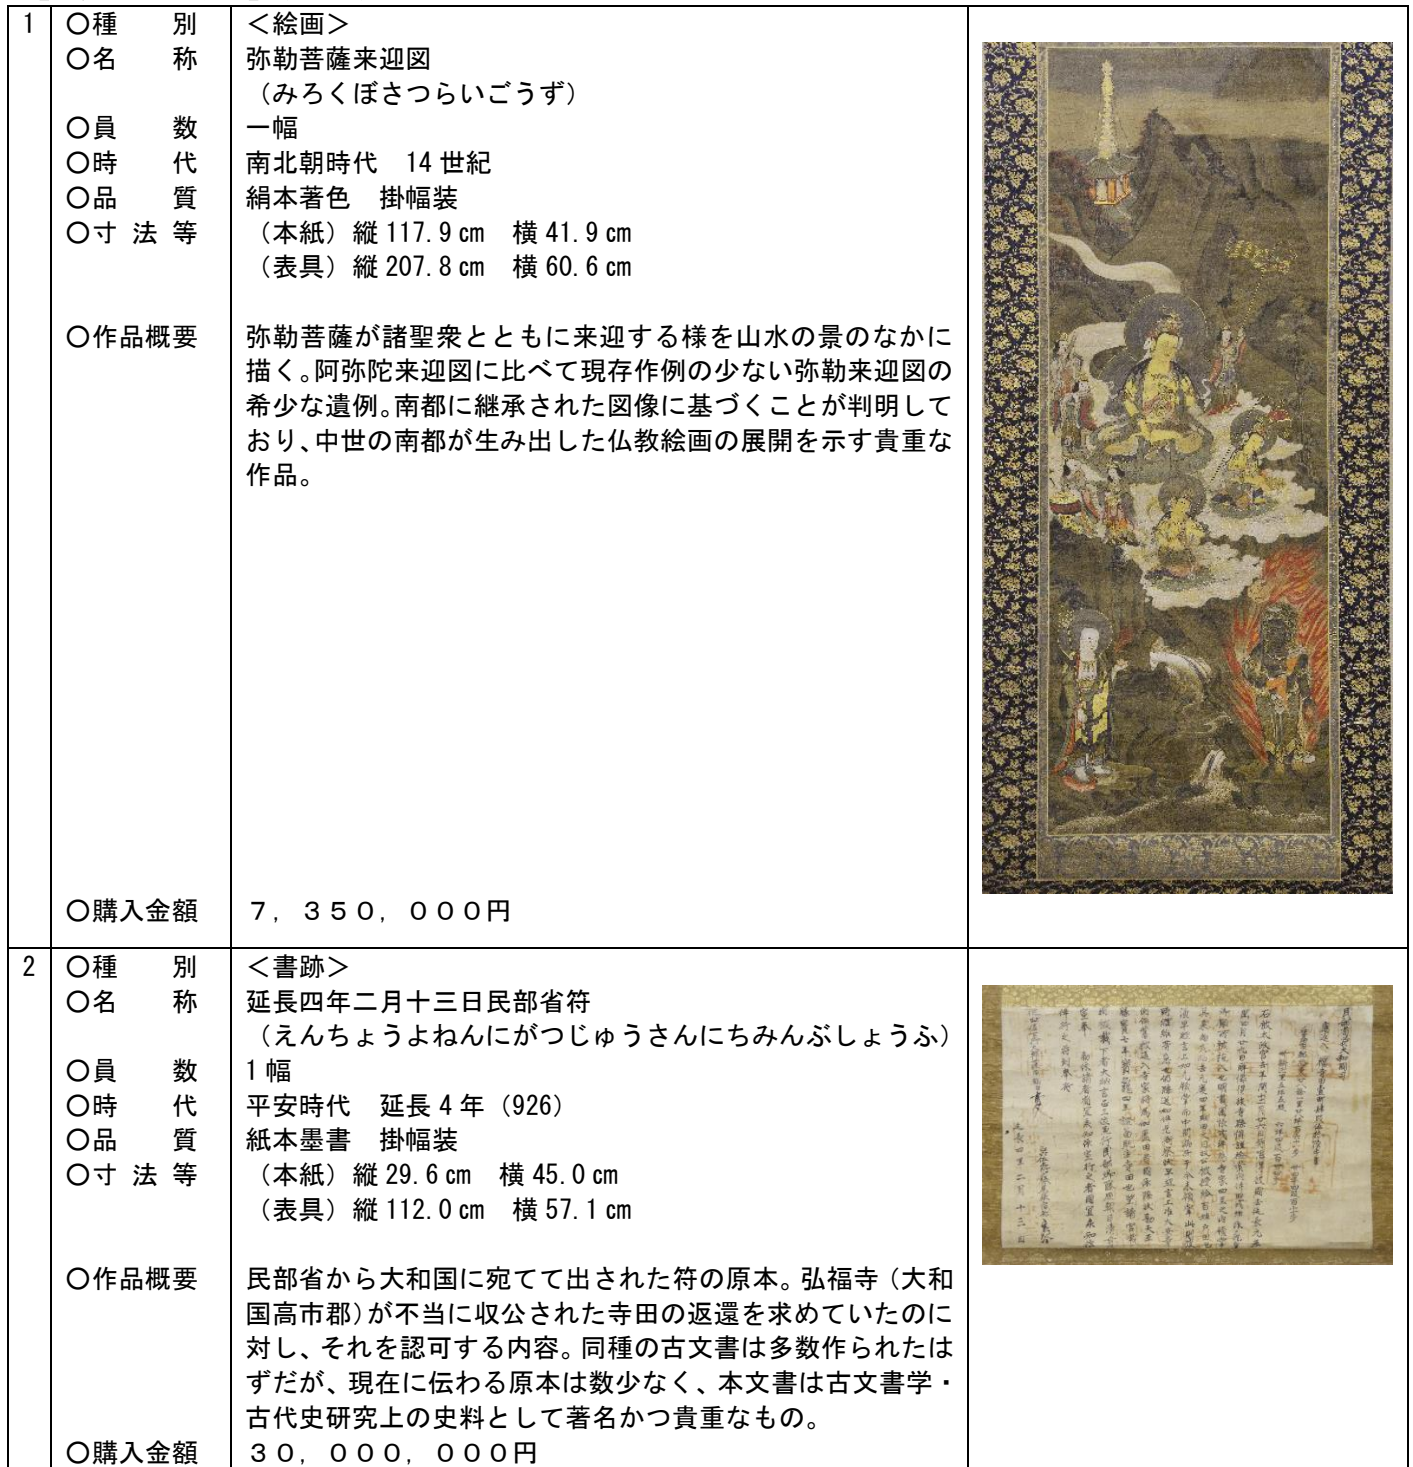 1
〇種　別　＜絵画＞
〇名　称　弥勒菩薩来迎図
（みろくぼさつらいごうず）
〇員　数　一幅
〇時　代　南北朝時代　14 世紀
〇品　質　絹本著色　掛幅装
〇寸 法 等　（本紙）縦 117.9 ㎝　横 41.9 ㎝
（表具）縦 207.8 ㎝　横 60.6 ㎝
〇作品概要　弥勒菩薩が諸聖衆とともに来迎する様を山水の景のなかに
描く。阿弥陀来迎図に比べて現存作例の少ない弥勒来迎図の
希少な遺例。南都に継承された図像に基づくことが判明して
おり、中世の南都が生み出した仏教絵画の展開を示す貴重な
作品。
〇購入金額　７，３５０，０００円
2
〇種　別　＜書跡＞
〇名　称　延長四年二月十三日民部省符
（えんちょうよねんにがつじゅうさんにちみんぶしょうふ）
〇員　数　1 幅
〇時　代　平安時代　延長 4 年（926）
〇品　質　紙本墨書　掛幅装
〇寸 法 等　（本紙）縦 29.6 ㎝　横 45.0 ㎝
（表具）縦 112.0 ㎝　横 57.1 ㎝
〇作品概要　民部省から大和国に宛てて出された符の原本。弘福寺（大和
国高市郡）が不当に収公された寺田の返還を求めていたのに
対し、それを認可する内容。同種の古文書は多数作られたは
ずだが、現在に伝わる原本は数少なく、本文書は古文書学・
古代史研究上の史料として著名かつ貴重なもの。
〇購入金額　３０，０００，０００円
延長四年二月十三日